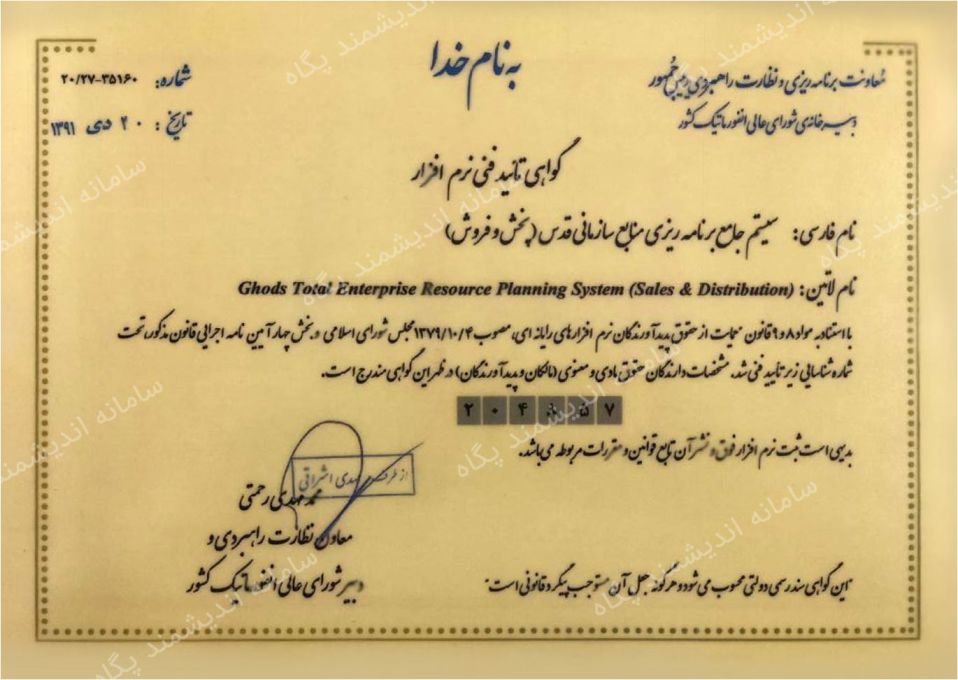 به نام خدا
معاونت برنامه ریزی و نظارت راهبردی رئیس جمهور
دبیرخانه‌ی شورای عالی انفورماتیک کشور
شماره: ۲۰/۲۷-۳۵۱۶۰
تاریخ: ۲۰ دی ۱۳۹۱
گواهی تائید فنی نرم افزار
نام فارسی: سیستم جامع برنامه ریزی منابع سازمانی قدس (پخش و فروش)
نام لاتین: Ghods Total Enterprise Resource Planning System (Sales & Distribution)
با استناد به مواد ۸ و ۹ قانون حمایت از حقوق پدیدآورندگان نرم افزارهای رایانه ای، مصوب ۱۳۷۹/۱۰/۴ مجلس شورای اسلامی و بخش چهار آیین نامه اجرایی قانون مذکور، تحت
شماره شناسایی زیر تایید فنی شد. مشخصات دارندگان حقوق مادی و معنوی (مالکان و پدیدآورندگان) در ظهر این گواهی مندرج است.
۲۰۴۸۵۷
بدیهی است ثبت نرم افزار فوق و نشر آن تابع قوانین و مقررات مربوطه می باشد.
از طرف مهدی اشراقی
محمد مهدی رحمتی
معاون نظارت راهبردی و
دبیر شورای عالی انفورماتیک کشور
"این گواهی سند رسمی دولتی محسوب می شود و هرگونه جعل آن مستوجب پیگرد قانونی است."
سامانه اندیشمند پگاه